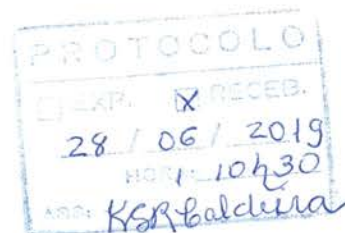 PROTOCOLO
EXP. X RECEB.
28 / 06 / 2019
HORA: 10h30
ASS: KSR Caldeira